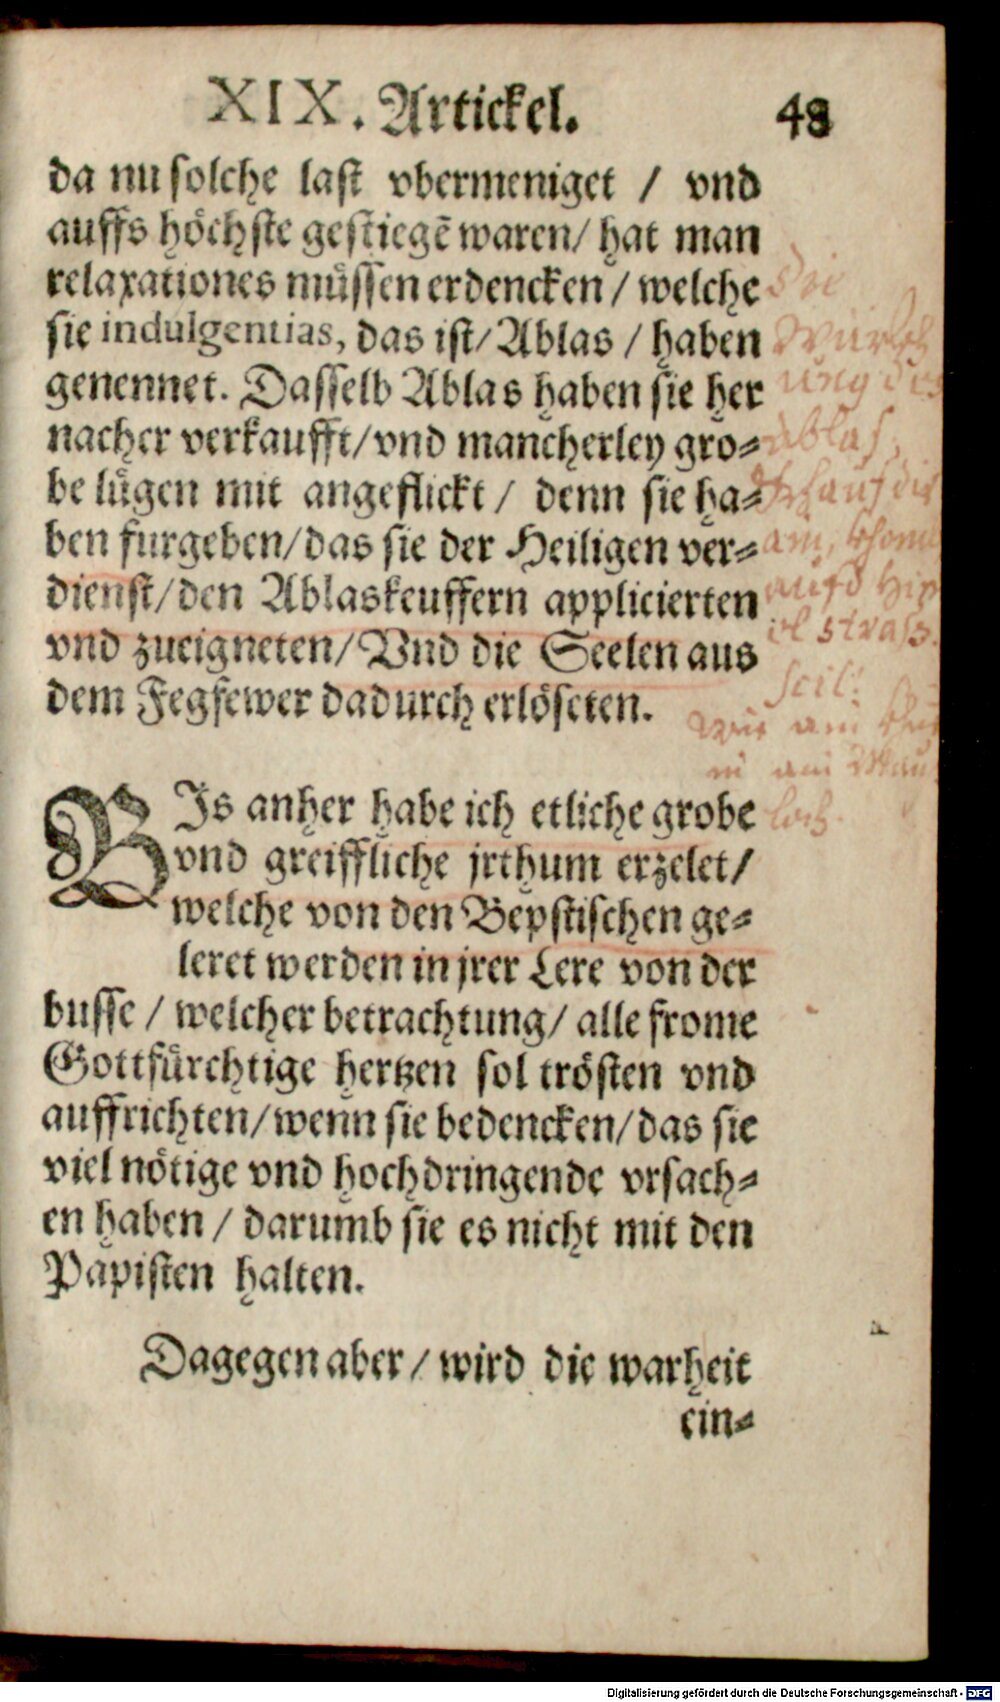 XIX. Artickel. 48
da nu solche last vbermeniget / vnd
auffs höchste gestiegē waren/ hat man
relaxationes müssen erdencken / welche
sie indulgentias, das ist/ Ablas / haben
genennet. Dasselb Ablas haben sie her
nacher verkaufft/vnd mancherley gro⸗
be lügen mit angeflickt / denn sie ha⸗
ben furgeben/das sie der Heiligen ver⸗
dienst/den Ablaskeuffern applicierten
vnd zueigneten/ Vnd die Seelen aus
dem Fegfewer dadurch erlöseten.
die
ablas,
scil:
BIs anher habe ich etliche grobe
vnd greiffliche jrthum erzelet/
welche von den Bepstischen ge⸗
leret werden in jrer Lere von der
busse / welcher betrachtung/ alle frome
Gottfürchtige hertzen sol trösten vnd
auffrichten/wenn sie bedencken/das sie
viel nötige vnd hochdringende vrsach⸗
en haben / darumb sie es nicht mit den
Papisten halten.
Dagegen aber / wird die warheit
ein⸗
Digitalisierung gefördert durch die Deutsche Forschungsgemeinschaft - DFG